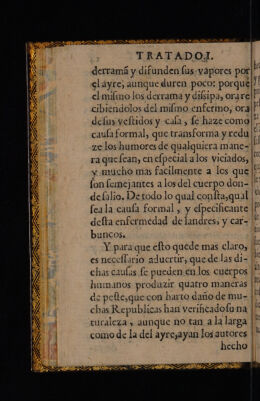 TRATADO I.
derramã y difunden sus vapores por
el ayre, aunque duren poco: porque
el mismo los derrama y dissipa, ora re
cibiendolos del mismo enfermo, ora
de sus vestidos y casa, se haze como
causa formal, que transforma y redu
ze los humores de qualquiera mane-
ra que sean, en especial a los viciados,
y mucho mas facilmente a los que
son semejantes a los del cuerpo don-
de salio. De todo lo qual consta, qual
sea la causa formal, y especificante
desta enfermedad de landres, y car-
buncos.
Y para que esto quede mas claro,
es necessario aduertir, que de las di-
chas causas se pueden en los cuerpos
humanos produzir quatro maneras
de peste, que con harto daño de mu-
chas Republicas han verificado su na
turaleza, aunque no tan a la larga
como de la del ayre, ayan los autores
hecho